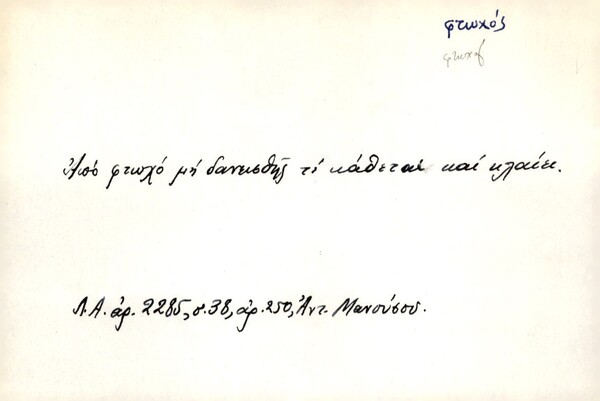 φτωχός
φτωχος
Ἀπό φτωχό μή δανεισθῇς τί κάθεται καί κλαίει.
Λ.Α. ἀρ. 2285, σ. 38, ἀρ. 250, Ἀντ. Μανούσου.